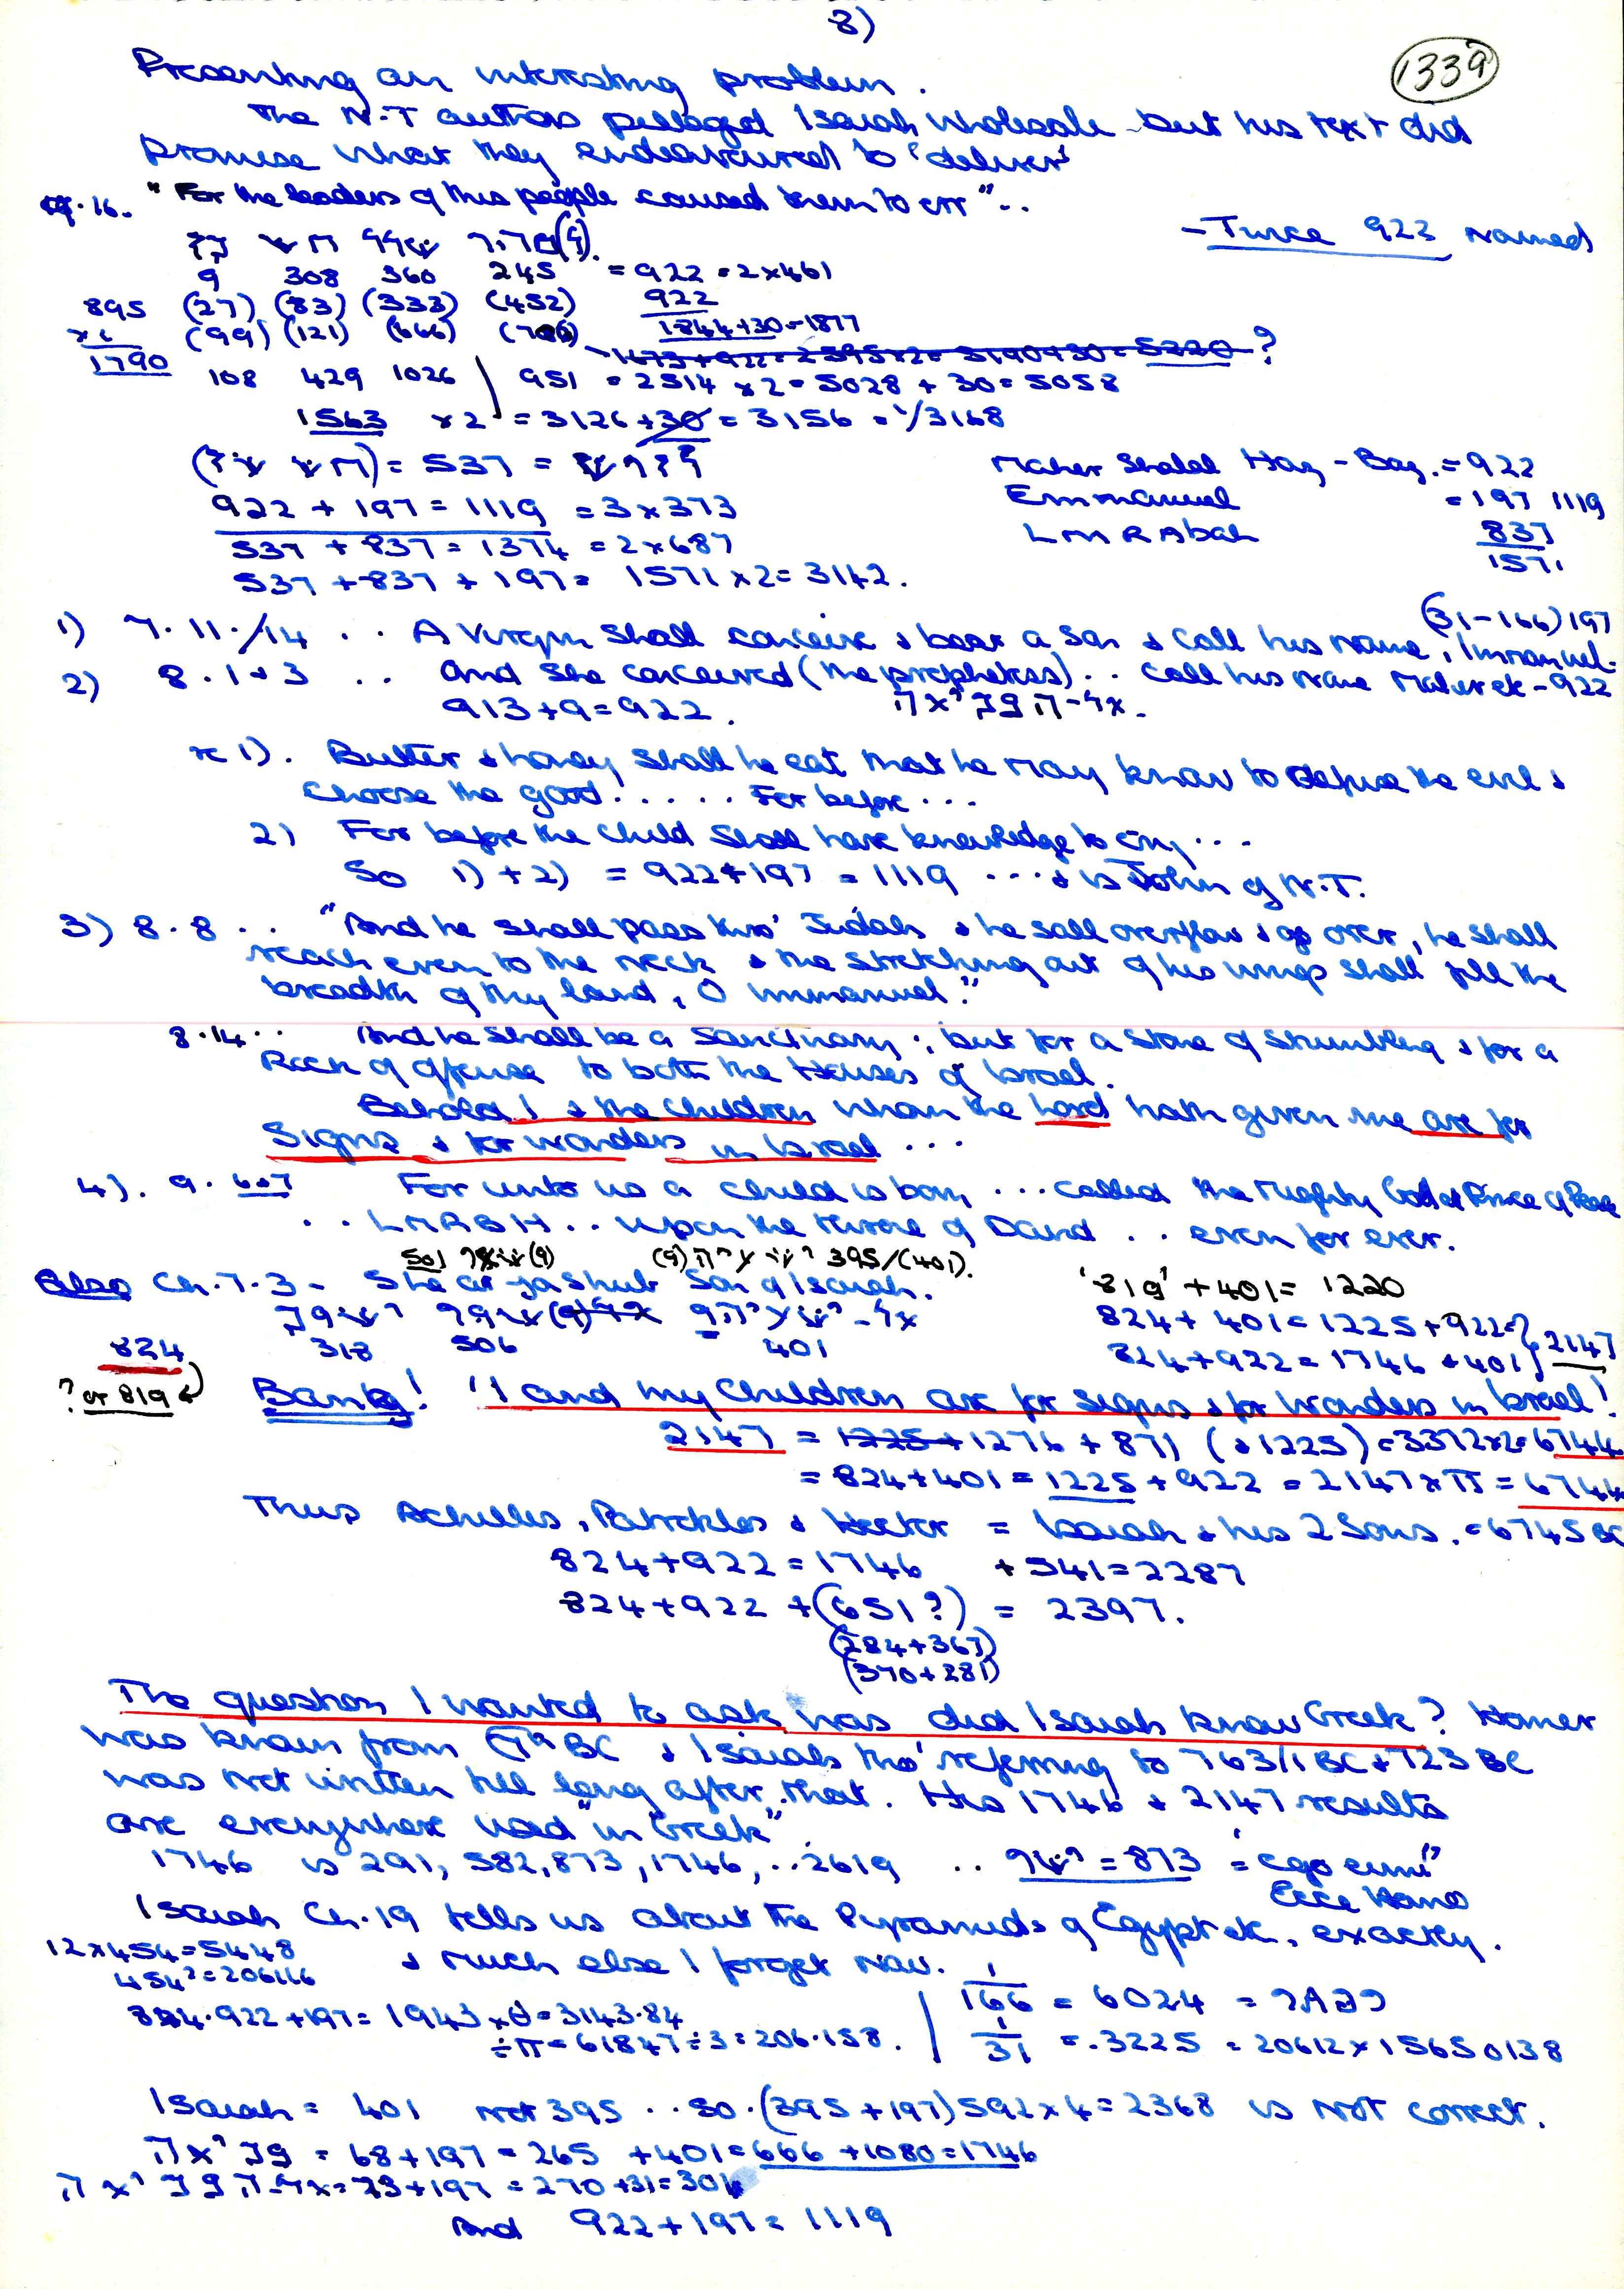 8)
1339
Presenting an interesting problem.
The N.T authors pillaged Isaiah wholesale but his text did
Promise what they endeavoured to 'deliver'
9.16. "For the leaders of this people caused them to err"..
- Twice 922 named
9 308 360 245 = 922 = 2x461
895 (27) (83) (333) (452) 922
x2 (99) (121) (666) 1844+30=1877
1790
1673+922=2595x2=5190+30=5220 ?
108 429 1026 ) 951 = 2514 x2=5028 + 30=5058
1563 x2 = 3126+30 = 3156 = 1/3168
= 537 =
Maher Shalal Haz-Baz. = 922
922 + 197 = 1119 = 3x373
Emmanuel = 197 1119
537 + 837 = 1374 = 2x687
LMRAbah 837
1571
537 + 837 + 197 = 1571 x2= 3142.
(31-166) 197
1) 7.11./14 .. A Virgin shall conceive & bear a son & call his name, Immanuel.
2) 8.1+3 .. And she conceived (the prophetess)... call his name Maher etc - 922
913+9=922.
1). Butter & honey shall he eat that he may know to refuse the evil &
choose the good!..... For before...
2) For before the child shall have knowledge to cry...
So 1)+2) = 922+197 = 1119 ...& is John of N.T.
3) 8.8 .. "And he shall pass thro' Judah & he sall overflow & go over, he shall
reach even to the neck & the stretching out of his wings shall fill the
breadth of thy land, O Immanuel."
8.14.. And he shall be a Sanctuary; but for a stone of stumbling & for a
Rock of offense to both the Houses of Israel.
Behold I & the children whom the Lord hath given me are for
Signs & for wonders in Israel ...
4). 9.6+7 For unto us a child is born, ...called the Mighty God et Prince of Peace
.. LMRBH.. upon the throne of David .. even for ever.
501 395/(401).
Also Ch.7.3 - Shear-jashub son of Isaiah.
'819' + 401= 1220
824+ 401=1225+922=} 2147
824 318 506 401
824+922=1746 +401}
? or 819
Bang! "I and my Children are for signs & for Wonders in Israel!
2147 = 1225+1276 + 871 (+1225)=3372x2=6744
= 824+401 = 1225+922 = 2147xπ = 6744
Thus Achilles, Patrokles & Hector = Isaiah & his 2 Sons. = 6745 BC
824+922=1746 +541=2287
824+922 +(651?) = 2397.
(284+367)
(370+281)
The question I wanted to ask was did Isaiah know Greek? Homer
was known from BC & Isaiah tho' referring to 763/1 BC+723 BC
was not written till long after, that. His 1746 & 2147 results
are everywhere used "in Greek".
1746 is 291, 582, 873, 1746, ..2619 .. = 873 = "ego eimi"
Ecce Homo
Isaiah Ch.19 tells us about the Pyramids of Egypt etc, exactly.
12x454=5448
& much else I forget now.
454²=206116
824.922+197= 1943 =3143.84
÷π=61847÷3=206.158.
1/166 = 6024 =
1/31 =.3225 = 20612x15650138
Isaiah = 401 not 395 ..So.(395+197)592x4=2368 is not correct.
= 68+197 = 265 +401=666 +1080=1746
= 73+197 = 270+31=301
And 922+197=1119